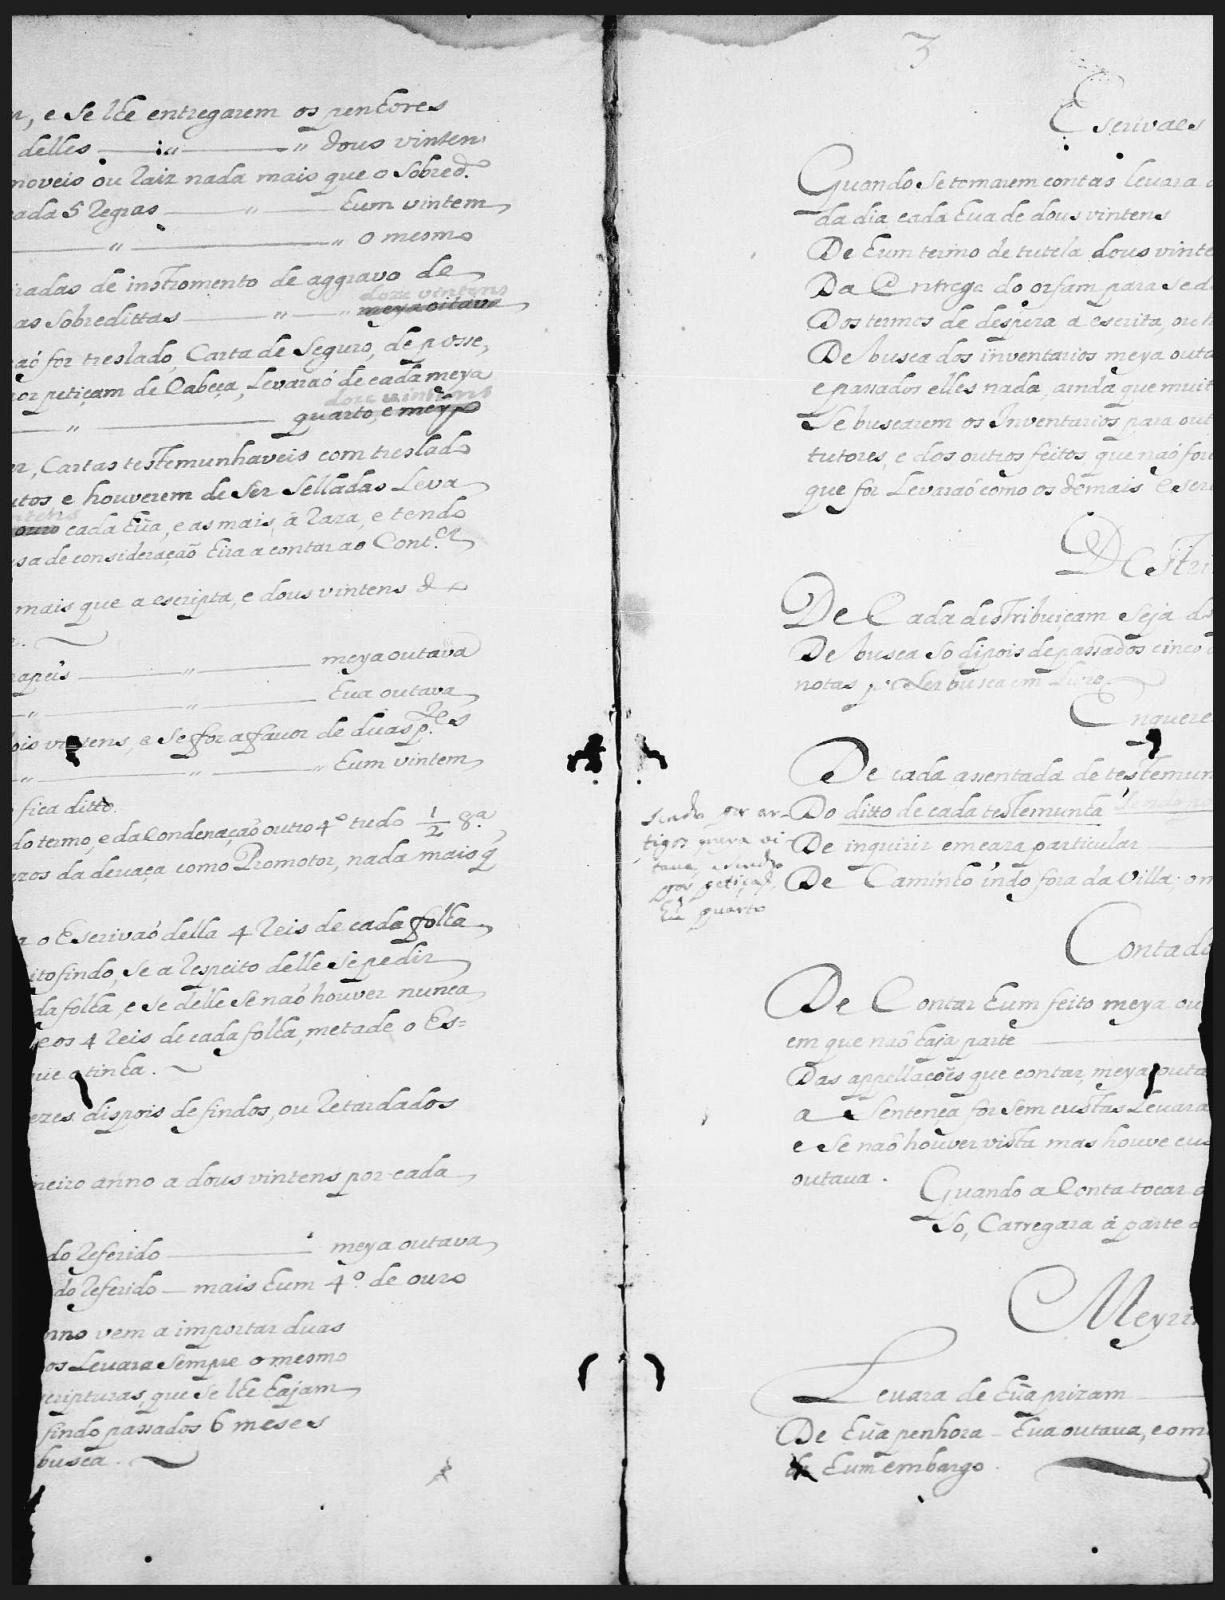 , e Se lhe entregarem os penhores
delles ——— " ——— " dous vinten
moveis ou Raiz nada mais que o Sobred.º
cada 5 Regras ——— " ——— hum vintem
——— " ——— " o mesmo
tiradas de instromento de aggravo de
as Sobredittas ——— " ——— " doze vintens meya oitava
naó for treslado, Carta de Seguro, de posse,
por petiçam de Cabeça, Levaraó de cada meya
——— " ——— doze vintens quarto, e meyo
Cartas testemunhaveis com treslado
autos e houverem de Ser Selladas Leva
vintens
ouro cada hũa, e as mais, á Raza, e tendo
causa de consideração hira a contar ao Cont.or
mais que a escripta, e dous vintens de

papeis ——— " ——— meya outava
" ——— " ——— hua outava
dois vintens, e Se for a favor de duas p.tes
" ——— " ——— " hum vintem
fica ditto.
do termo, e da Condenação outro 4º tudo 1/2 8.ª
da devaça como Promotor, nada mais q̃
o Escrivaó della 4 Reis de cada folha
feito findo, Se a Respeito delle Se pedir
da folha, e Se delle Se naó houver nunca
e os 4 Reis de cada folha, metade o Es=
que a tinha.
dispois de findos, ou Retardados
primeiro anno a dous vintens por cada
do Referido ——— meya outava
do Referido — mais hum 4º de ouro
anno vem a importar duas
os Levara Sempre o mesmo
escripturas, que Se lhe hajam
findo passados 6 meses
busca.
3
Escrivaes
Quando Se tomarem contas levara
da dia cada hua de dous vintens
De hum termo de tutela dous vinte
Da Entrega do orfam para Se d
Dos termos de despeza a escrita, ou
De busca dos inventarios meya outa
e passados elles nada, ainda que muit
Se buscarem os Inventarios para out
tutores, e dos outros feitos que naó for
que for Levaraó como os demais Escri
Destri
De Cada distribuiçam Seja do
De busca So dipois de passados cinco
notas p.ª Ser busca em Livro.
Enquere
De cada assentada de testemun
Do ditto de cada testemunha Sendo por
De inquirir em cara particular ———
De Caminho indo fora da Villa o m
Sendo por ar-
tigos huma oi
tava, e Sendo
por petiçaó,
hũ quarto
Contado
De Contar hum feito meya ou
em que naó haja parte ———
Das appellacoẽs que contar, meya outa
a Sentença for Sem custas Levara
e Se naó houver vista mas houve cus
outava.
Quando a Conta tocar a
So, Carregara á parte
Meyri
Levara de hũa prizam ———
De hũa penhora — hua outava, e o m
de hum embargo.